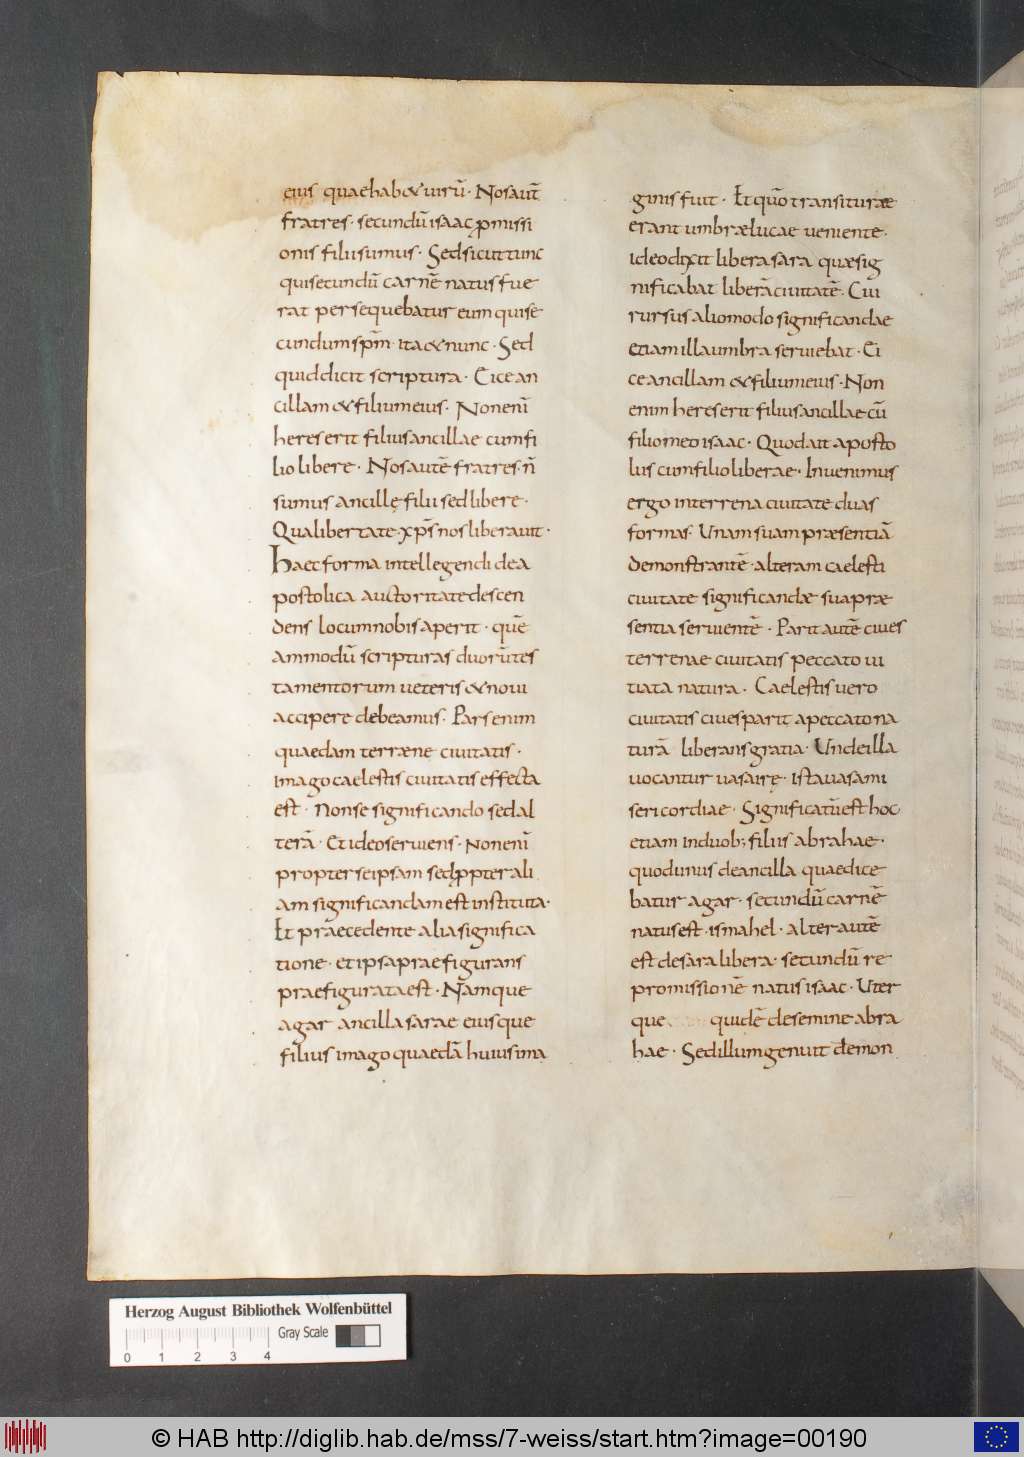 eius quae hab& uirū· Nos aut̄
fratres· secundū isaac ꝓmissi
onis filii sumus· Sed sicut tunc
qui secundū carnē natus fue
rat persequebatur eum qui se
cundum sp̄m· ita & nunc· Sed
quid dicit scriptura· Eice an
cillam & filium eius· Non enī
heres erit filius ancillae cum fi
lio libere· Nos autē fratres n̄
sumus ancillę filii sed libere·
Qua libertate xp̄s nos liberauit·
Haec forma intellegendi de a
postolica auctoritate descen
dens locum nobis aperit· quē
ammodū scripturas duorū tes
tamentorum ueteris & noui
accipere debeamus· Pars enim
quaedam terræne ciuitatis·
imago caelestis ciuitatis effecta
est· Non se significando sed al
terā· Et ideo seruiens· Non enī
propter se ipsam sed ꝓpter ali
am significandam est instituta·
Et præcedente alia significa
tione· et ipsa praefigurans
praefigurata est· Nam que
agar ancilla sarae eiusque
filius imago quaedā huius ima
ginis fuit· Et quō transituræ
erant umbræ lucae ueniente·
ideo dixit libera sara quæ sig
nificabat liberā ciuitatē· Cui
rursus alio modo significandae
etiam illa umbra seruiebat· Ei
ce ancillam & filium eius· Non
enim heres erit filius ancillae cū
filio meo isaac· Quod ait aposto
lus cum filio liberae· Inuenimus
ergo in terrena ciuitate duas
formas· Unam suam præsentiā
demonstrantē· alteram caelesti
ciuitate significandæ sua præ
sentia seruientē· Parit autē ciues
terrenae ciuitatis peccato ui
tiata natura· Caelestis uero
ciuitatis ciues parit a peccato na
turā liberans gratia· Unde illa
uocantur uasa irę· ista uasa mi
sericordiae· Significatū est hoc
etiam in duob; filiis abrahae·
quod unus de ancilla quae dice
batur agar· secundū carnē
natus est· ismahel· alter autē
est de sara libera· secundū re
promissionē natus isaac· Uter
que quidē de semine abra
hae· Sed illum genuit demon
Herzog August Bibliothek Wolfenbüttel
Gray Scale
0 1 2 3 4
© HAB http://diglib.hab.de/mss/7-weiss/start.htm?image=00190